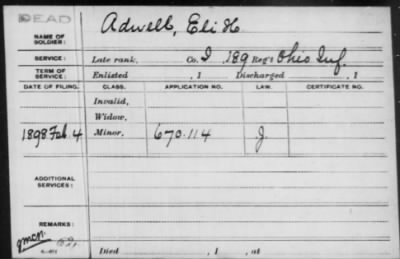 DEAD
NAME OF SOLDIER: Adwell, Eli H.
SERVICE: Late rank, Co. I, 189 Reg't Ohio Inf.
TERM OF SERVICE: Enlisted , 1 Discharged , 1
DATE OF FILING. CLASS. APPLICATION NO. LAW. CERTIFICATE NO.
Invalid,
Widow,
1898 Feb 4 Minor, 670.114 J.
ADDITIONAL SERVICES:
REMARKS:
Died , 1 , at